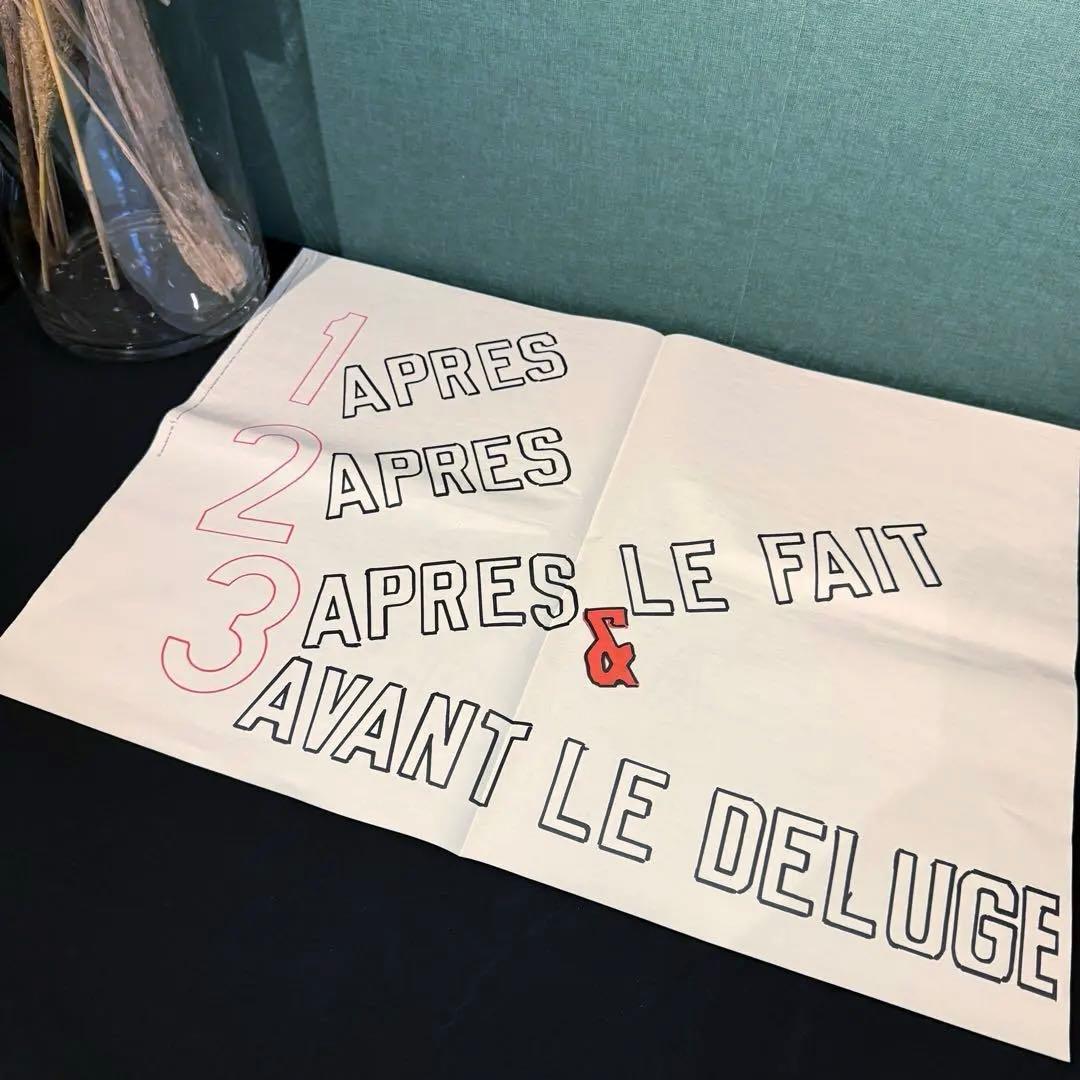 1 APRES
2 APRES
3 APRES LE FAIT
&
AVANT LE DELUGE